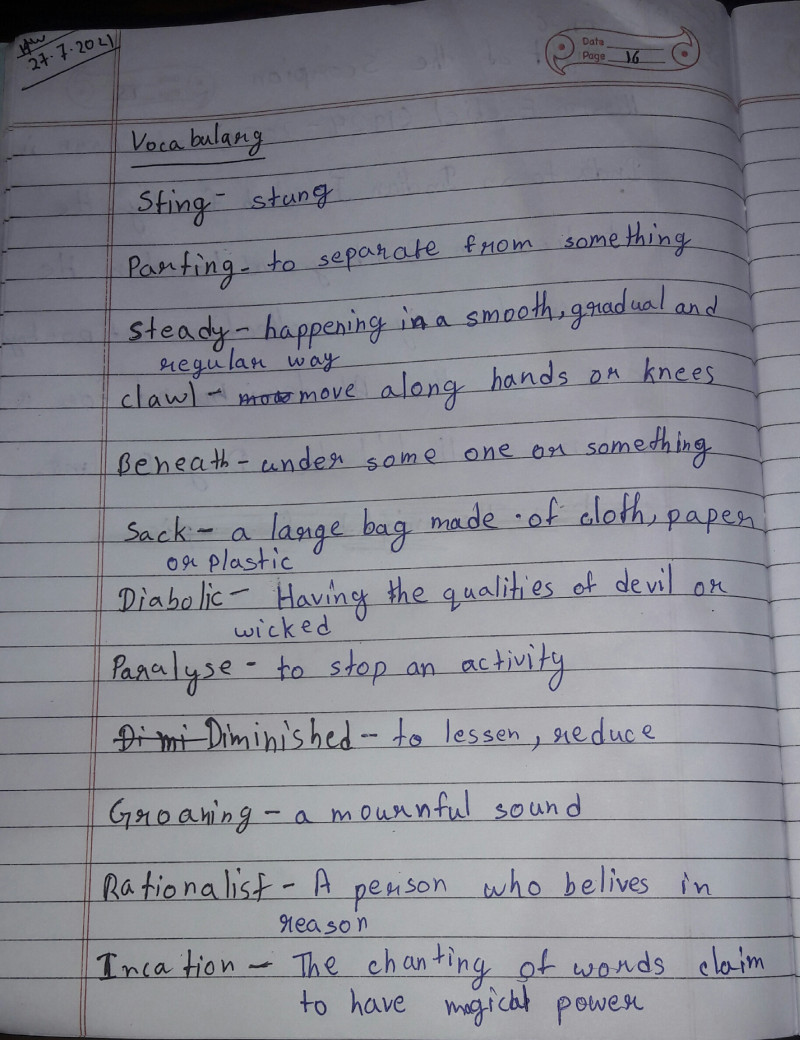 HW
27.7.2021
Date
Page 16
Vocabulary
Sting - stung
Parting - to separate from something
Steady - happening in a smooth, gradual and
regular way
clawl - move along hands or knees
Beneath - under some one or something
Sack - a large bag made of cloth, paper
or plastic
Diabolic - Having the qualities of devil or
wicked
Paralyse - to stop an activity
Di mi Diminished - to lessen, reduce
Groaning - a mournful sound
Rationalist - A person who belives in
reason
Incation - The chanting of words claim
to have magical power